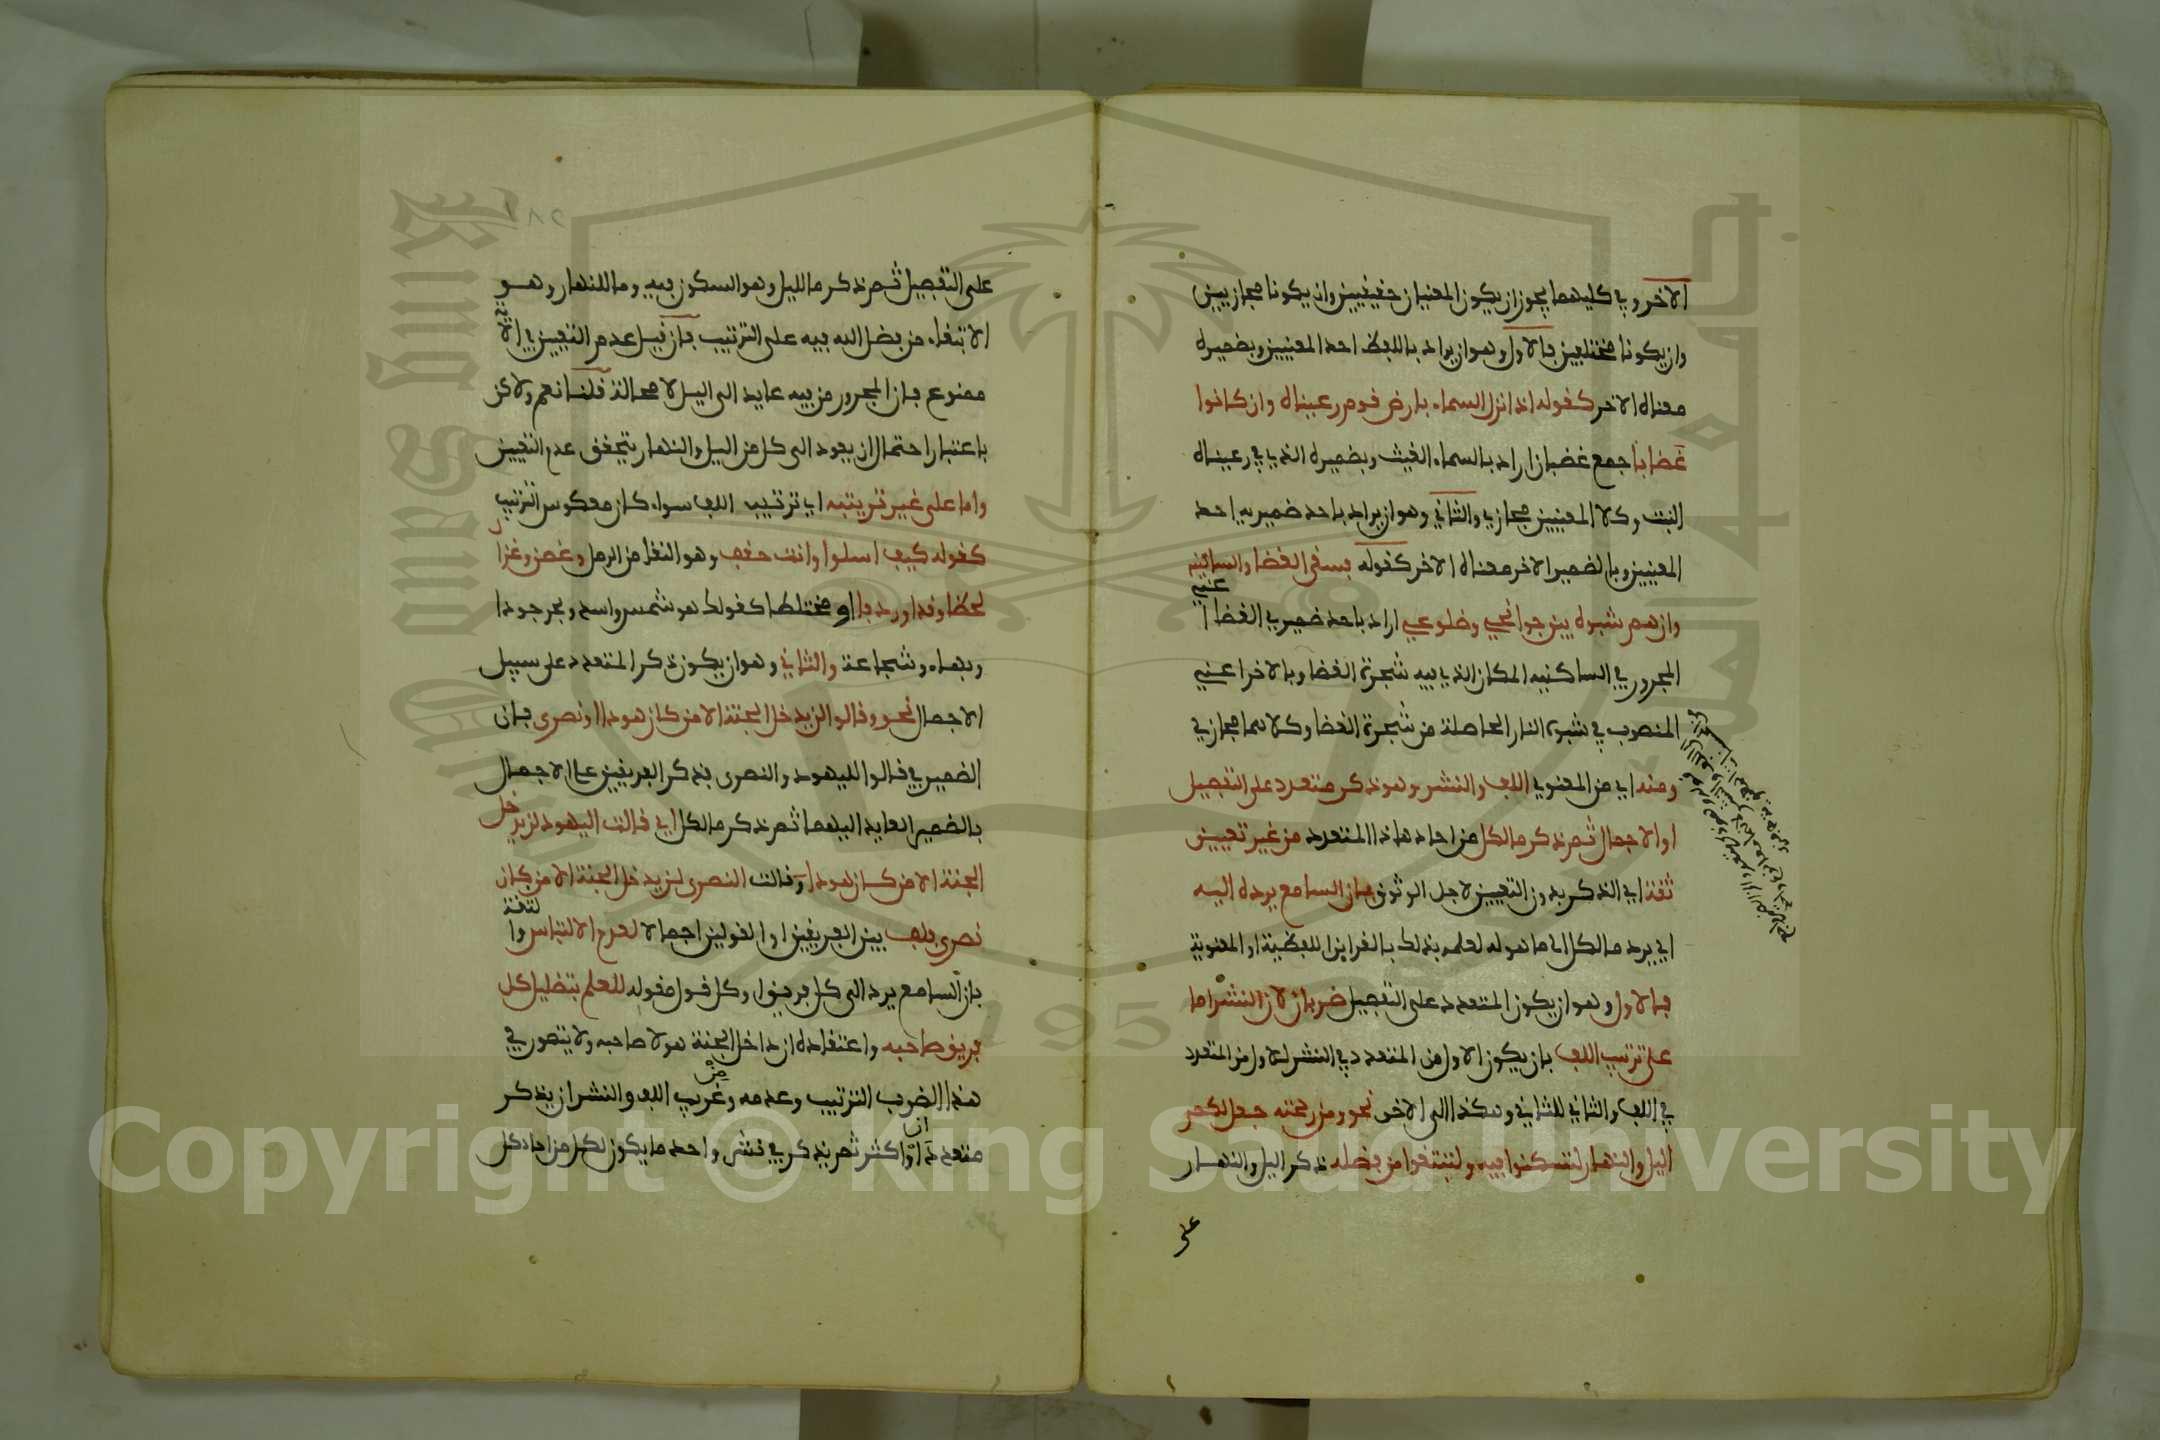 الاخر وفي كليهما يجوز ان يكون المعنيان حقيقيين وان يكونا مجازيين
وان يكونا مختلفين فالاول وهو ان يراد باللفظ احد المعنيين وبضميره
معناه الاخر كقوله اذا نزل السماء بارض قوم رعيناه وان كانوا
غضابا جمع غضبان اراد بالسماء الغيث وبضميره الذي في رعيناه
النبت وكلا المعنيين مجازي والثاني وهو ان يراد باحد ضميريه احد
المعنيين وبالضمير الاخر معناه الاخر كقوله فسقى الغضا والساكنيه
وان هم شبوه بين جوانحي وضلوعي اراد باحد ضميري الغضا اعني
المجرور في الساكنيه المكان الذي فيه شجرة الغضا وبالاخر اعني
المنصوب في شبوه النار الحاصلة من شجرة الغضا وكلاهما مجازي
ومنه اي من المعنوي اللف والنشر وهو ذكر متعدد على التفصيل
او الاجمال ثم ذكر ما لكل من احاد هاذا المتعدد من غير تعيين
ثقة اي الذكر بدون التعيين لاجل الوثوق بان السامع يرده اليه
اي يرد ما لكل الى ما هو له لعلمه بذلك بالقراين اللفظية او المعنوية
فالاول وهو ان يكون المتعدد على التفصيل ضربان لان النشر اما
على ترتيب اللف بان يكون الاول من المتعدد في النشر للاول من المتعدد
في اللف والثاني للثاني وهكذا الى الاخر نحو ومن رحمته جعل لكم
اليل والنهار لتسكنوا فيه ولتبتغوا من فضله ذكر اليل والنهار
على
١٨٢
على التفصيل ثم ذكر ما لليل وهو السكون فيه وما للنهار وهو
الابتغاء من فضل الله فيه على الترتيب فان قيل عدم التعيين في الاية
ممنوع فان المجرور من فيه عايد الى اليل لا محالة قلنا نعم ولاكن
باعتبار احتمال ان يعود الى كل من اليل والنهار يتحقق عدم التعيين
واما على غير ترتيبه اي ترتيب اللف سواء كان معكوس الترتيب
كقوله كيف اسلوا وانت حقف وهو النقا من الرمل وغصن وغزال
لحظا وقدا وردفا او مختلطا كقولك هو شمس واسد وبحر جودا
وبهاء وشجاعة والثاني وهو ان يكون ذكر المتعدد على سبيل
الاجمال نحو وقالوا لن يدخل الجنة الا من كان هودا او نصرى فان
الضمير في قالوا لليهود والنصرى فذكر الفريقين على الاجمال
بالضمير العايد اليهما ثم ذكر ما لكل اي قالت اليهود لن يدخل
الجنة الا من كان هودا وقالت النصرى لن يدخل الجنة الا من كان
نصرى فلف بين الفريقين او القولين اجمالا لعدم الالتباس والثقة
بان السامع يرد الى كل فريق او كل قول مقوله للعلم بتضليل كل
فريق صاحبه واعتقاده ان داخل الجنة هو لا صاحبه ولا يتصور في
هذا الضرب الترتيب وعدمه ومن غريب اللف والنشر ان يذكر
متعددان او اكثر ثم يذكر في نشر واحد ما يكون لكل من احاد كل
Copyright © King Saud University
1957